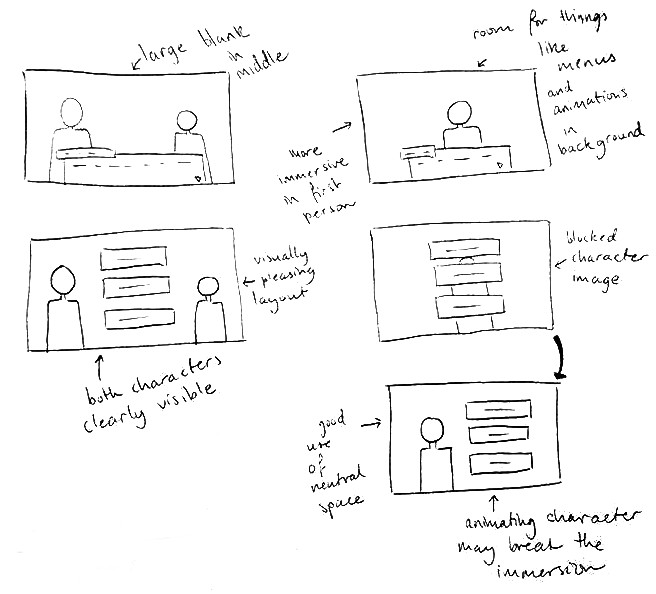 large blank
in
middle
room for things
like
menus
and
animations
in
background
more
immersive
in first
person
visually
pleasing
layout
blocked
character
image
both characters
clearly visible
good
use
of
neutral
space
animating character
may break the
immersion